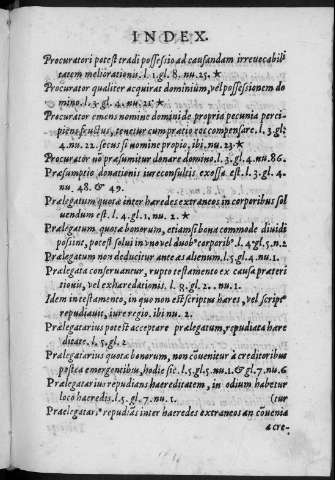 INDEX.
Procuratori potest tradi possessio ad causandam irreuocabili
tatem meliorationis. l. 1. gl. 8. nu. 25. ★
Procurator qualiter acquirat dominium, vel possessionem do
mino. l. 3. gl. 4. nu. 21. ★
Procurator emens nomine domini de propria pecunia perci
piens fructus, tenetur cum pratio eos compensare. l. 3. gl.
4. nu. 22. secus si nomine propio, ibi, nu. 23. ★
Procurator nõ præsumitur donare domino. l. 3. gl. 4. nu. 86.
Præsumptio donationis iureconsultis exosa est. l. 3. gl. 4.
nu. 48. & 49.
Prælegatum quotæ inter haredes extraneos in corporibus sol
uendum est. l. 4. gl. 1. nu. 2. ★
Prælegatum quotæ bonorum, etiamsi bona commode diuidi
possint, potest solui in vno vel duobꝰ corporibꝰ. l. 4. gl. 5. n. 2
Prælegatum non deducitur ante æs alienum. l. 5. gl. 4. nu. 1.
Prælegata conseruantur, rupto testamento ex causa præteri
tionis, vel exharedationis. l. 8. gl. 2. . nu. 1.
Idem in testamento, in quo non est scriptus hares, vel scriptꝰ
repudiauit, iure regio. ibi nu. 2.
Prælegatarius potest acceptare prælegatum, repudiata hare
ditate. l. 5. gl. 2
Prælegatarius quotæ bonorum, non cõuenitur à creditoribus
postea emergentibus, hodie sic. l. 5. gl. 5. nu. 1. & gl. 7. nu. 6
Prælegatarius repudians haereditatem, in odium habetur
loco haeredis. l. 5. gl. 7. nu. 1. (tur
Praelegatarꝰ repudiãs inter haeredes extraneos an cõuenia
a cre-